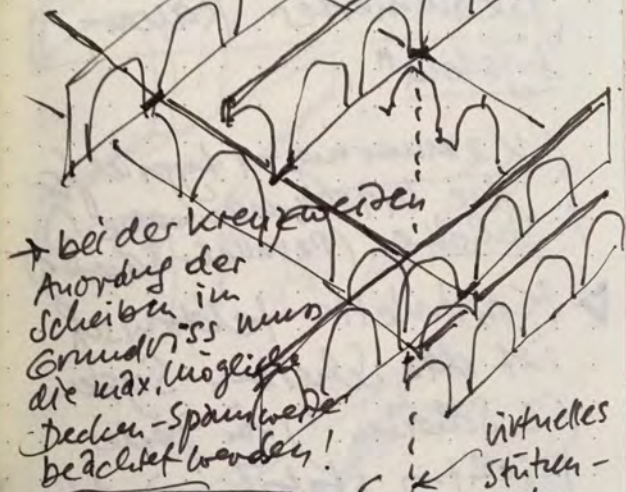 → bei der kreuzweisen
Anordng der
Scheiben im
Grundriss muss
die max. mögliche
Decken-Spannweite
beachtet werden!
virtuelles
Stützen-